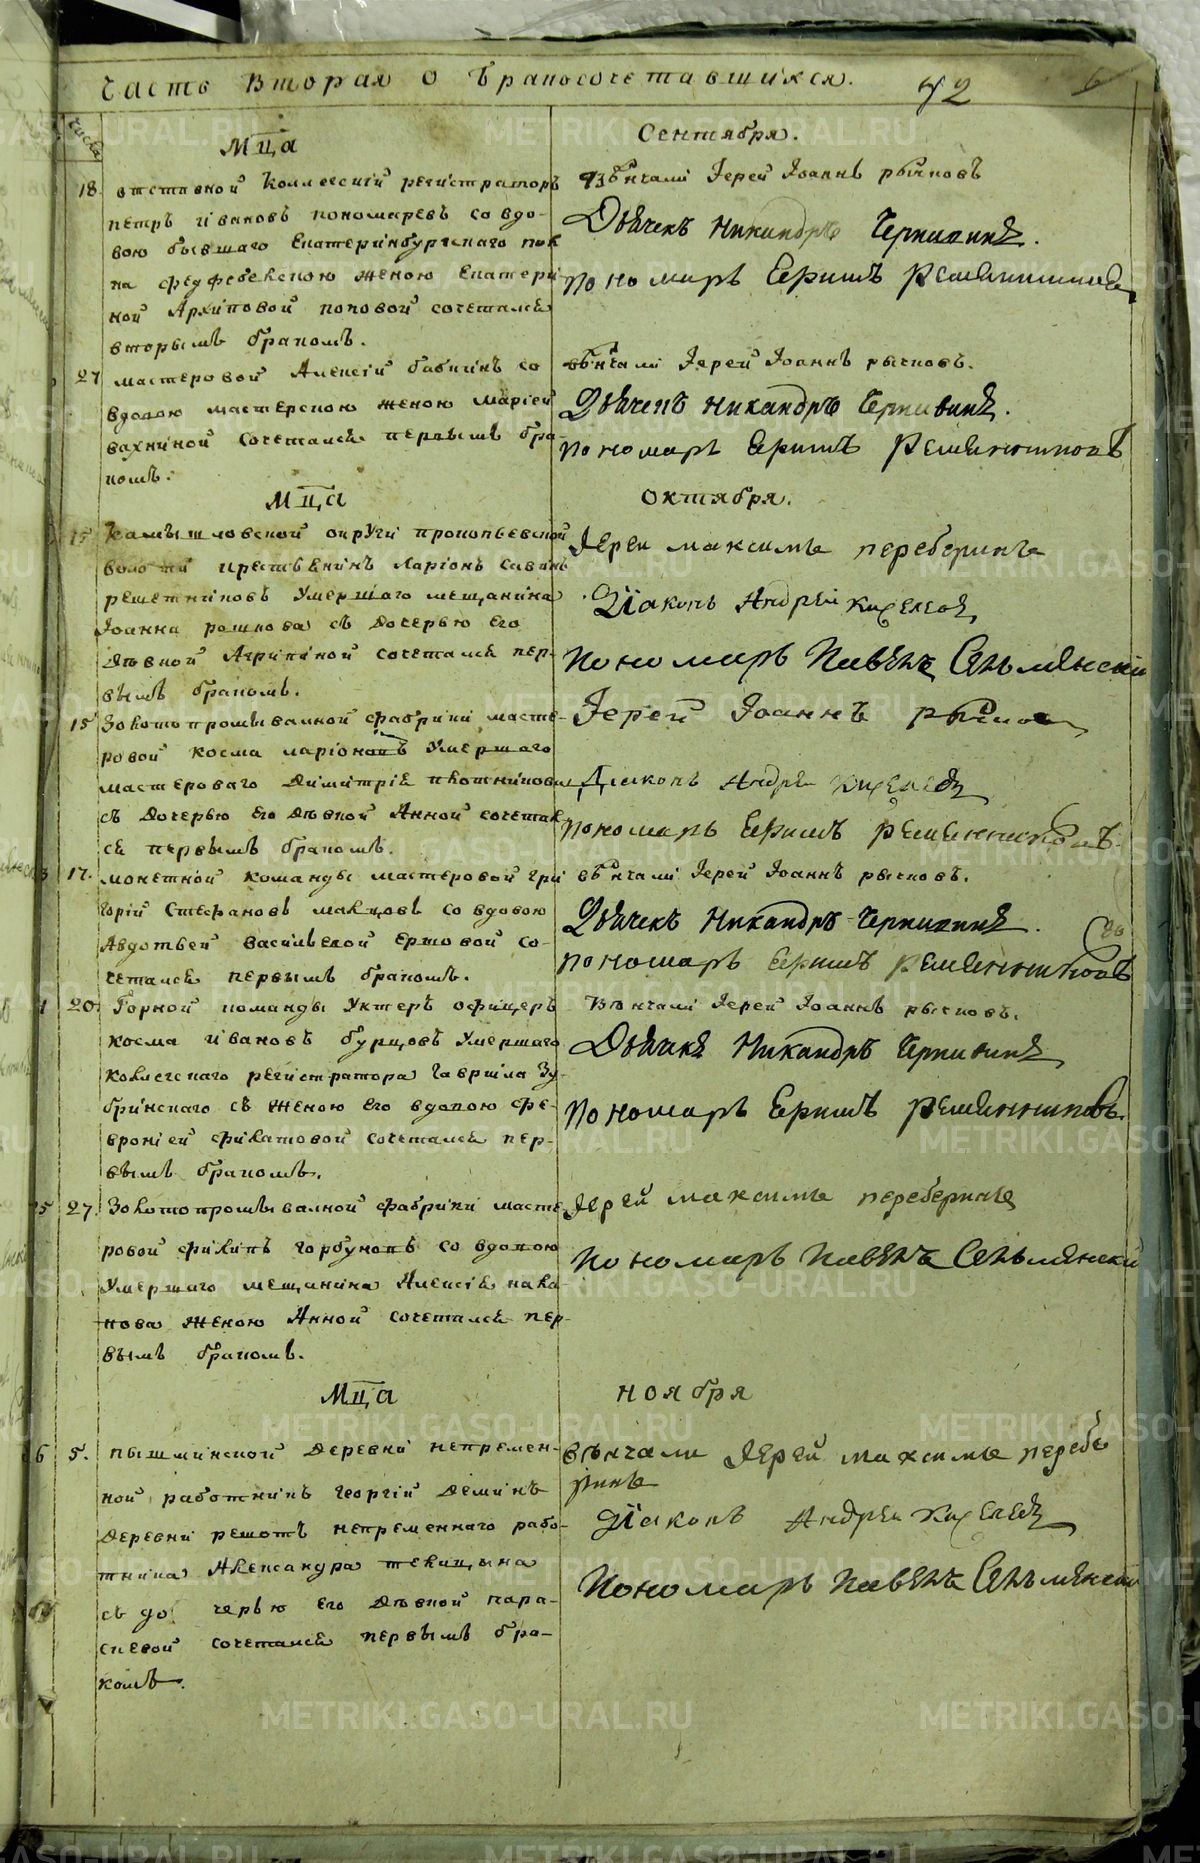 Часть Вторая о Бракосочетавшихся. 72
число
Мца Сентября.
18. отставной Коллеской регистраторъ
петръ ивановъ пономаревъ со вдо-
вою бывшаго Екатеринбургскаго пол
ка фелфебельскою женою Екатери
ной Архиповой поповой сочетался
вторымъ бракомъ.
вѣнчали Іерей Іоаннъ рычковъ
Дьячекъ Никандръ Чернавинъ.
пономарь Ефимъ Решетниковъ
27 мастеровой Алексій бабкинъ со
вдовою мастерскою женою Маріей
вахниной Сочетался первымъ бра-
комъ.
вѣнчали Іерей Іоаннъ рычковъ.
Дьячекъ Никандръ Чернавинъ.
пономарь Ефимъ Решетниковъ
Мца октября.
15 Камышловской округи прокопьевской
волости крестьянинъ Ларіонъ Савинъ
решетниковъ Умершаго мещанина
Іоанна рошкова съ Дочерью Его
Дѣвкой Агрипиной сочетался пер-
вымъ бракомъ.
Іерей максимъ переберинъ
Діаконъ Андрей Киселевъ
Пономарь Павелъ
15 Золотопромывалной фабрики масте-
ровой косма ларіоновъ Умершаго
мастероваго Димитрія плотникова
съ Дочерью Его Дѣвкой Анной сочетал
ся первымъ бракомъ.
Іерей Іоаннъ рычковъ
Діаконъ Андрей Киселевъ
пономарь Ефимъ Решетниковъ
17. монетной команды мастеровой гри
горій Стефановъ макцовъ со вдовою
Авдотьей васильевой Ершовой со-
четался первымъ бракомъ.
вѣнчали Іерей Іоаннъ рычковъ.
Дьячекъ Никандръ Чернавинъ.
пономарь Ефимъ Решетниковъ
20. Горной команды Унтеръ офицеръ
косма ивановъ бурцовъ Умершаго
колегскаго регистратора Гавриила Зу-
бринскаго съ женою его вдовою фе-
вроніей филатовой сочетался пер-
вымъ бракомъ.
Вѣнчали Іерей Іоаннъ рычковъ.
Дьячекъ Никандръ Чернавинъ
пономарь Ефимъ Решетниковъ
27. Золотопромывалной фабрики масте
ровой филипъ горбуновъ со вдовою
Умершаго мещанина Алексія
женою Анной сочетался пер-
вымъ бракомъ.
Іерей максимъ переберинъ
Пономарь Павелъ
Мца ноября
6 5. пышминской Деревни непремен-
ной работникъ георгій Деминъ
Деревни решотъ непременнаго рабо-
тника Александра текицына
съ дочерью его Дѣвкой пара-
скевой сочетался первымъ бра-
комъ.
вѣнчали Іерей максимъ перебе
ринъ
Діаконъ Андрей Киселевъ
Пономарь Павелъ
METRIKI.GASO-URAL.RU